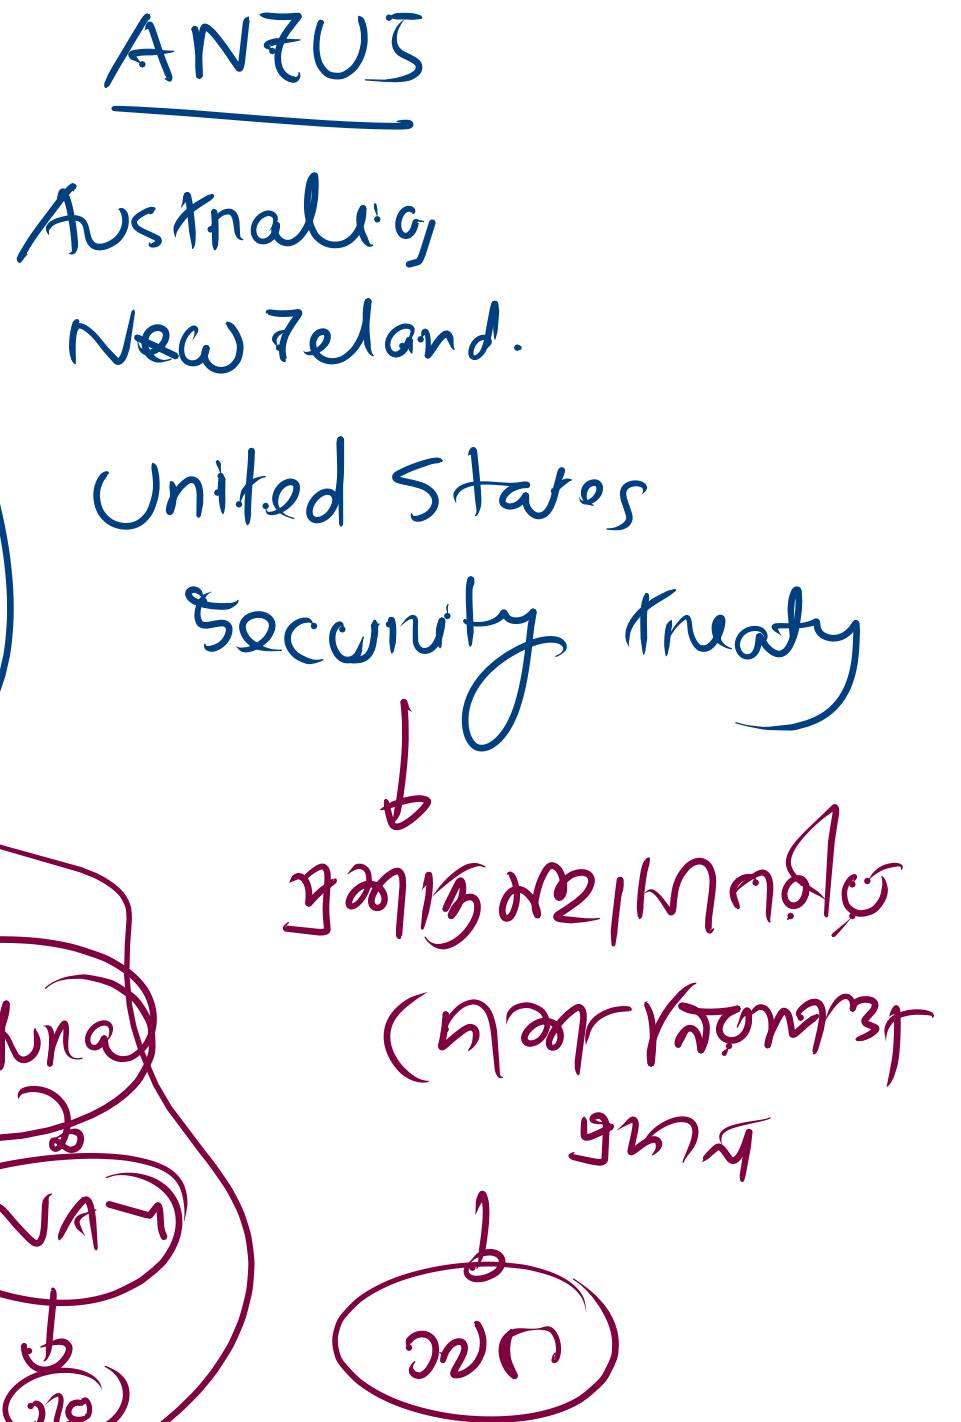 ANZUS
Australia,
New Zeland.
United States
Security treaty
প্রশান্ত মহাসাগরীয়
দেশ নিরাপত্তা
প্রদান
NAM